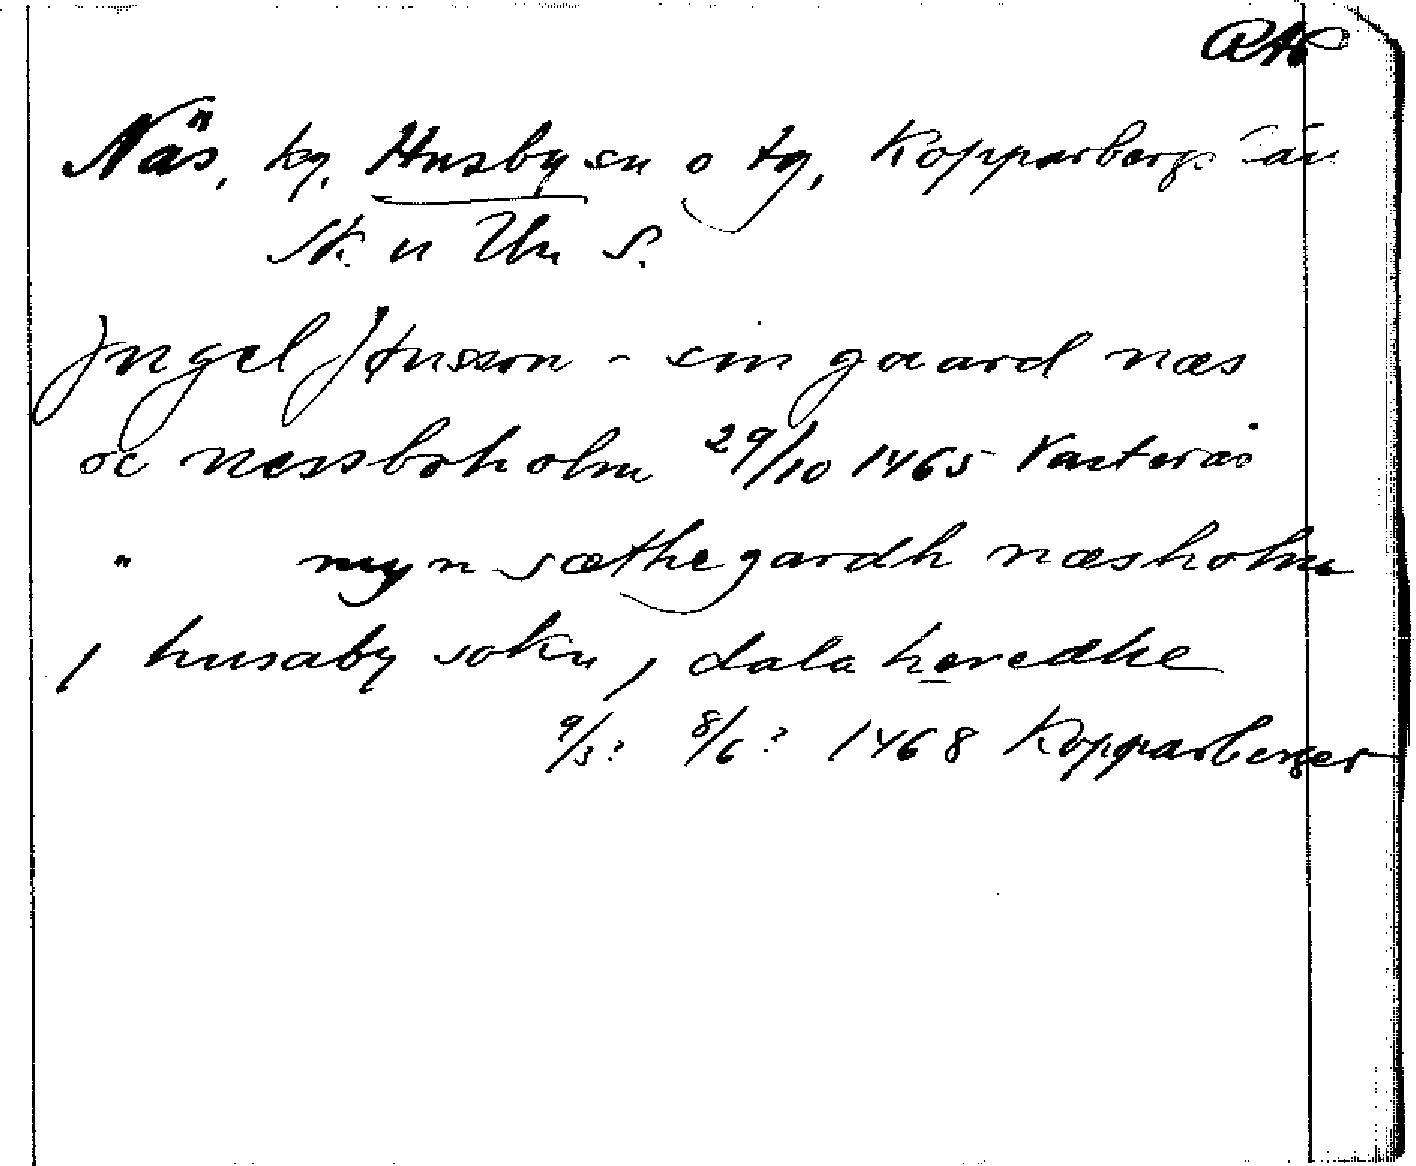 RAP
Näs, kg, Husby sn o tg, Kopparbergs län
St. u Un S.
Jngel Jonsson - sin gaard næs
oc næssboholm 29/10 1465 Västerås
" myn sæthegardh næsholm
j husaby sokn, j dala heredhe
9/3? 8/6? 1468 Kopparberget